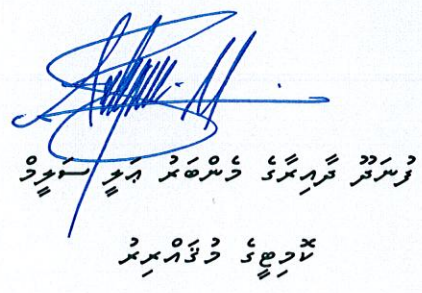 ފުނަދޫ ދާއިރާގެ މެންބަރު ޢަލީ ސަލީމް
ކޮމިޓީގެ މުޤައްރިރު